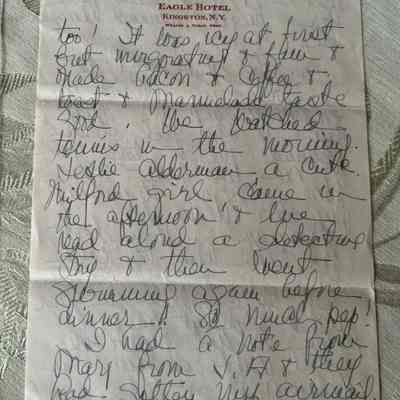 EAGLE HOTEL
KINGSTON, N.Y.
too. It was icy at first
but invigorating & fun &
made bacon & coffee &
toast & marmalade taste
good. We watched
tennis in the morning.
Leslie Alderman a cute
Milford girl came in
the afternoon & we
read aloud a detective
story & then went
swimming again before
dinner! So much pep!
I had a note from
Mary from V.H & they
had gotten my airmail